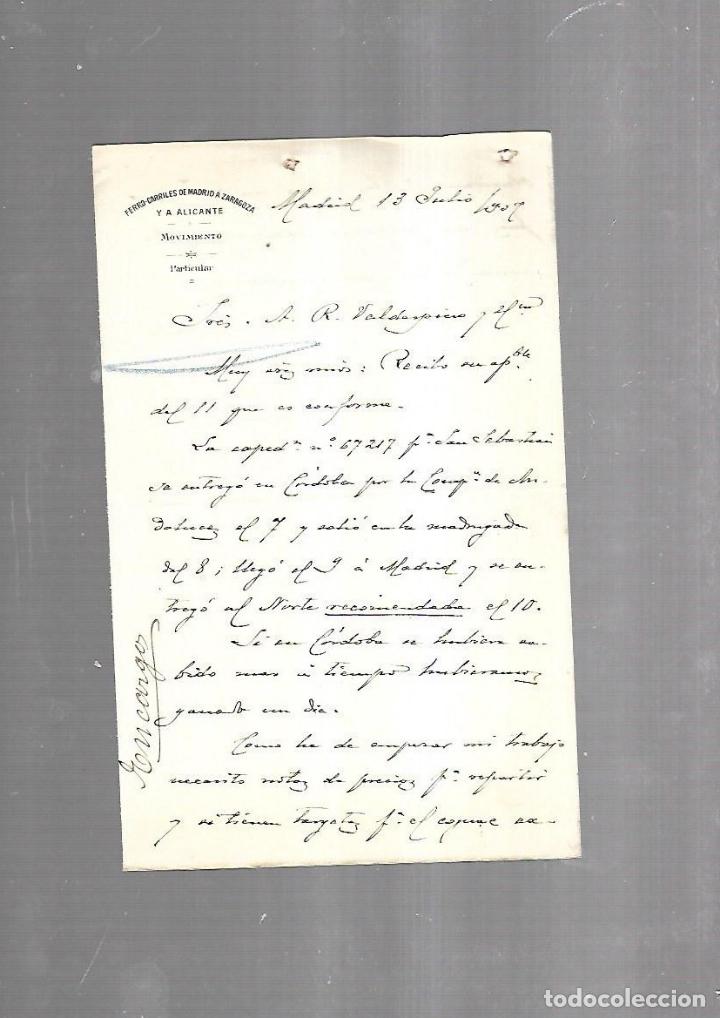 FERRO-CARRILES DE MADRID A ZARAGOZA
Y A ALICANTE
MOVIMIENTO
Particular
Madrid 13 Julio 1907
Sres. A. R. Valdespino y Hno
Muy srs mios: Recibo su apble
del 11 que es conforme.
La expedn nº 67217 pª San Sebastian
se entregó en Córdoba por la Compª de An-
daluces el 7 y salió en la madrugada
del 8; llegó el 9 á Madrid y se en-
tregó al Norte recomendada el 10.
Si en Córdoba se hubiera sa-
bido mas á tiempo hubieramos
ganado un dia.
Como he de empezar mi trabajo
necesito notas de precios pª repartir
y si tienen targetas pª el cognac
Encargo
todocoleccion
todocoleccion.net